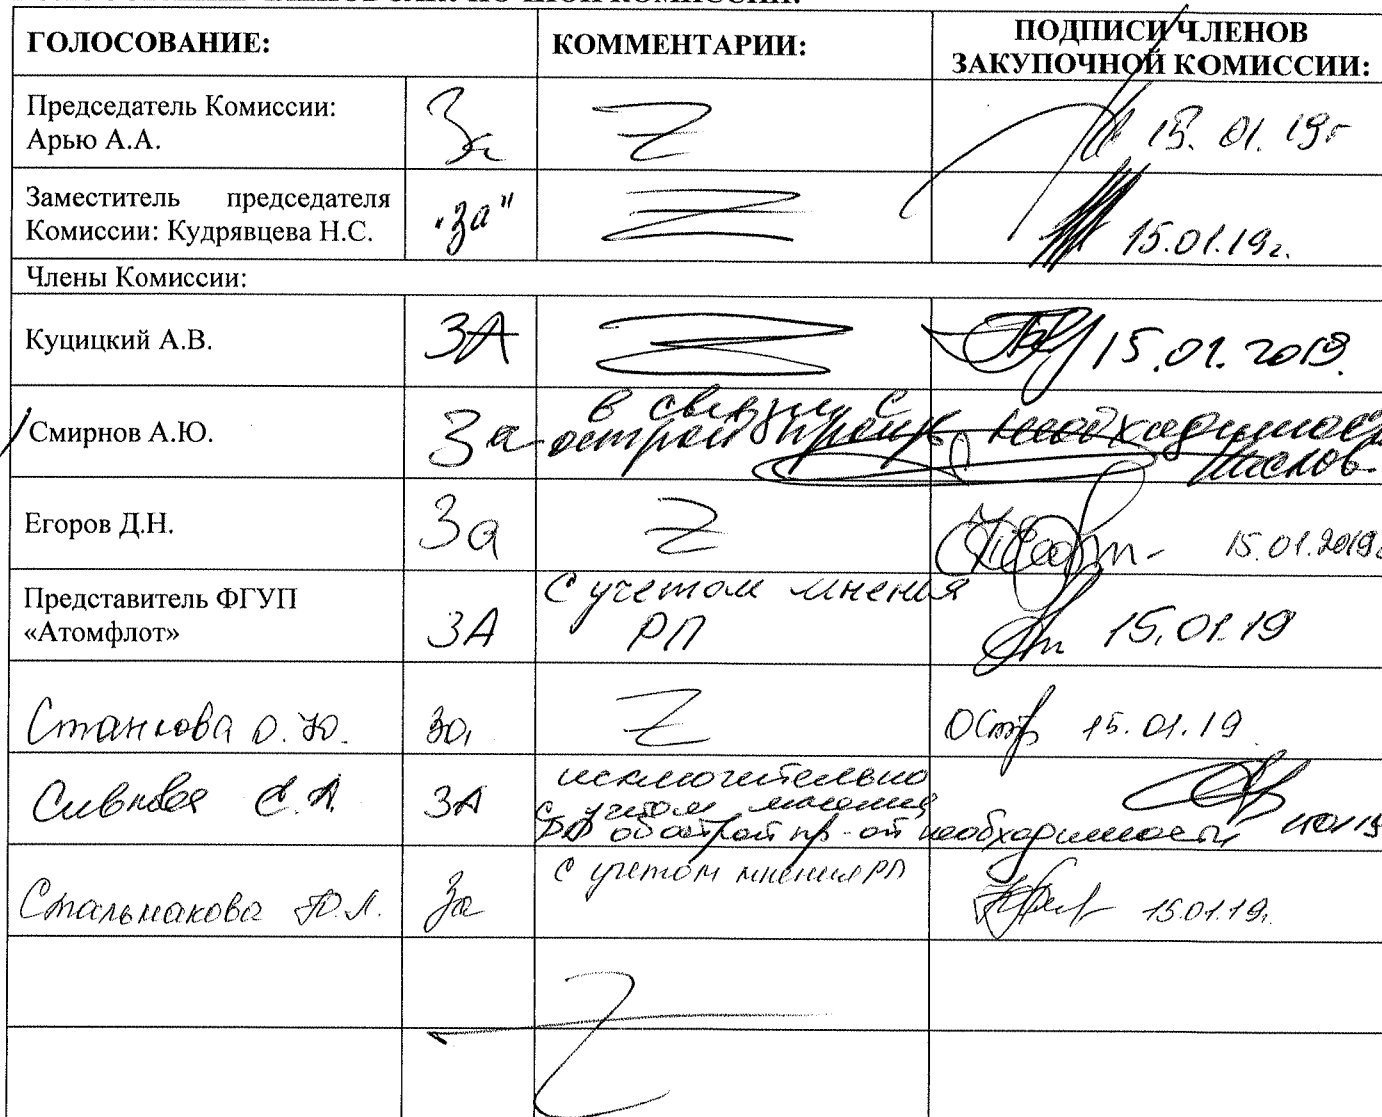 ГОЛОСОВАНИЕ:
КОММЕНТАРИИ:
ПОДПИСИ ЧЛЕНОВ
ЗАКУПОЧНОЙ КОМИССИИ:
Председатель Комиссии:
Арью А.А.
За
Z
15.01.19г
Заместитель председателя
Комиссии: Кудрявцева Н.С.
"За"
Z
15.01.19г.
Члены Комиссии:
Куцицкий А.В.
ЗА
Z
15.01.2019.
Смирнов А.Ю.
За
в связи с
острой произв. необходимостью
Егоров Д.Н.
За
Z
15.01.2019г
Представитель ФГУП
«Атомфлот»
ЗА
с учетом мнения
РП
15.01.19
О.Ю.
За
Z
15.01.19
ЗА
исключительно
с учетом мнения
РП об острой пр-ой необходимости
Стальмакова Ю.Л.
За
с учетом мнения РП
15.01.19г.
Z